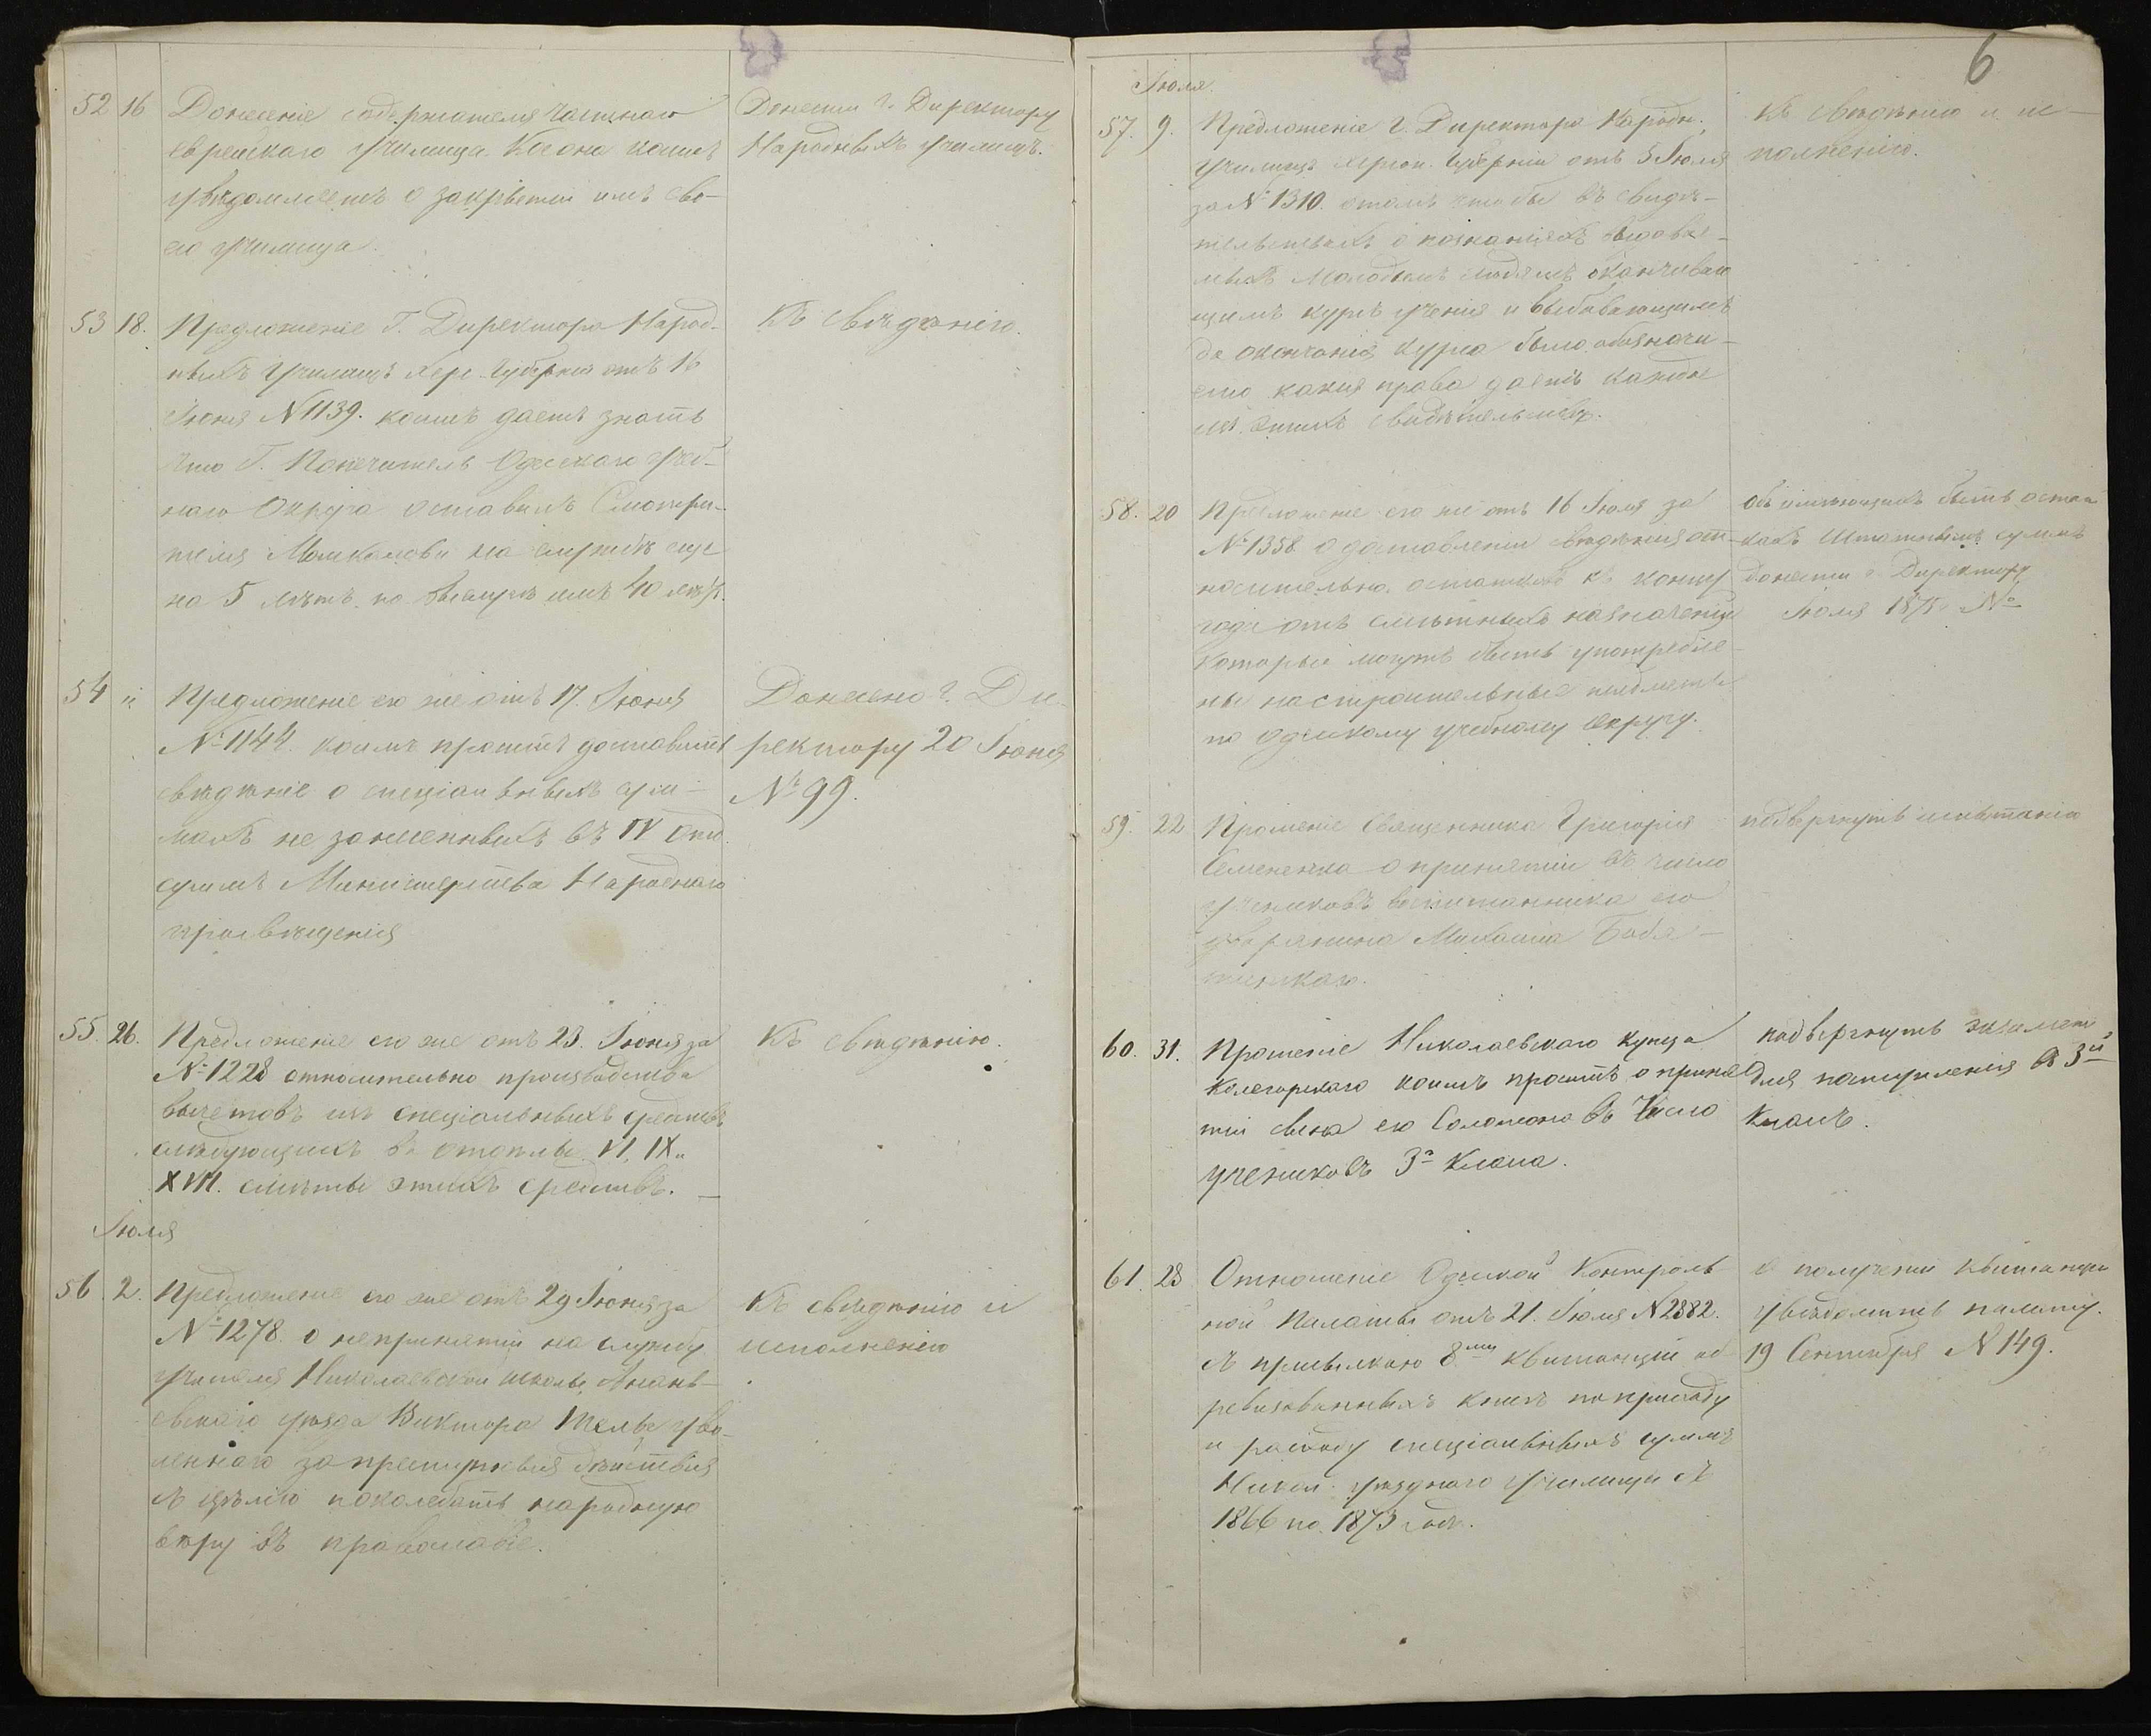 52 16 Донесеніе содержателя частнаго
еврейскаго училища Когона коимъ
увѣдомляетъ о закрытіи имъ сво-
его училища.
Донести г. Директору
Народныхъ училищъ.
53 18. Предложеніе Г. Директора Народ-
ныхъ Училищъ Хер. Губерніи отъ 16
Іюня N 1139. коимъ даетъ знать
что Г. Попечитель Одесскаго учеб-
наго Округа оставилъ Смотри-
теля на службѣ еще
на 5 лѣтъ по выслугѣ имъ 40 лѣтъ.
Къ свѣдѣнію.
54 " Предложеніе его же отъ 17. Іюня
№ 1144. коимъ проситъ доставить
свѣдѣніе о спеціальныхъ сум-
махъ не занесенныхъ въ IV
суммъ Министерства Народнаго
просвѣщенія
Донесено г. Ди-
ректору 20 Іюня
№ 99.
55. 26. Предложеніе его же отъ 23. Іюня за
№ 1228 относительно производства
вычетовъ изъ спеціальныхъ средствъ
слѣдующихъ въ отдѣлы VI, IX и
XVII. смѣты этихъ средствъ. —
Къ свѣдѣнію.
Іюля
56 2. Предложеніе его же отъ 29 Іюня за
№ 1278. о непринятіи на службу
учителя Николаевской школы, Анань-
евскаго уѣзда Виктора уво-
леннаго за преступныя дѣйствія
съ цѣлію поколебать народную
вѣру въ православіе.
Къ свѣдѣнію и
исполненію
6
Іюля.
57. 9. Предложеніе г. Директора Народн.
училищъ Херсон. Губерніи отъ 5 Іюля
за № 1310. о томъ чтобы въ свидѣ-
тельствахъ о познаніяхъ выдавае-
мыхъ молодымъ людямъ оканчиваю
щимъ курсъ ученія и выбывающимъ
до окончанія курса было обозначе-
но какія права даетъ каждое
изъ этихъ свидѣтельствъ.
Къ свѣдѣнію и ис-
полненію.
58. 20 Предложеніе его же отъ 16 Іюля за
№ 1358 о доставленіи свѣдѣнія от-
носительно остатковъ къ концу
года отъ смѣтныхъ назначеній
которые могутъ быть употребле-
ны на строительныя предметы
по одесскому учебному округу.
Объ имѣющихъ быть остат
кахъ штатныхъ суммъ
донести г. Директору
Іюля 1875 №
59. 22 Прошеніе Священника Григорія
Семененка о принятіи въ число
учениковъ воспитанника его
дворянина Михаила
подвергнуть испытанію
60. 31. Прошеніе Николаевскаго купца
коимъ проситъ о приня
тіи сына его Соломона въ число
учениковъ 3го Класса.
подвергнуть экзамену
для поступленія въ 3й
Классъ.
61. 28 Отношеніе Одесской Контроль
ной Палаты отъ 21. Іюля N 2882.
съ присылкою 8ми квитанцій об
ревизованныхъ книгъ по приходу
и расходу спеціальныхъ суммъ
Никол. уѣзднаго училища съ
1866 по 1873 годъ.
О полученіи квитанціи
увѣдомить палату.
19 Сентября N 149.